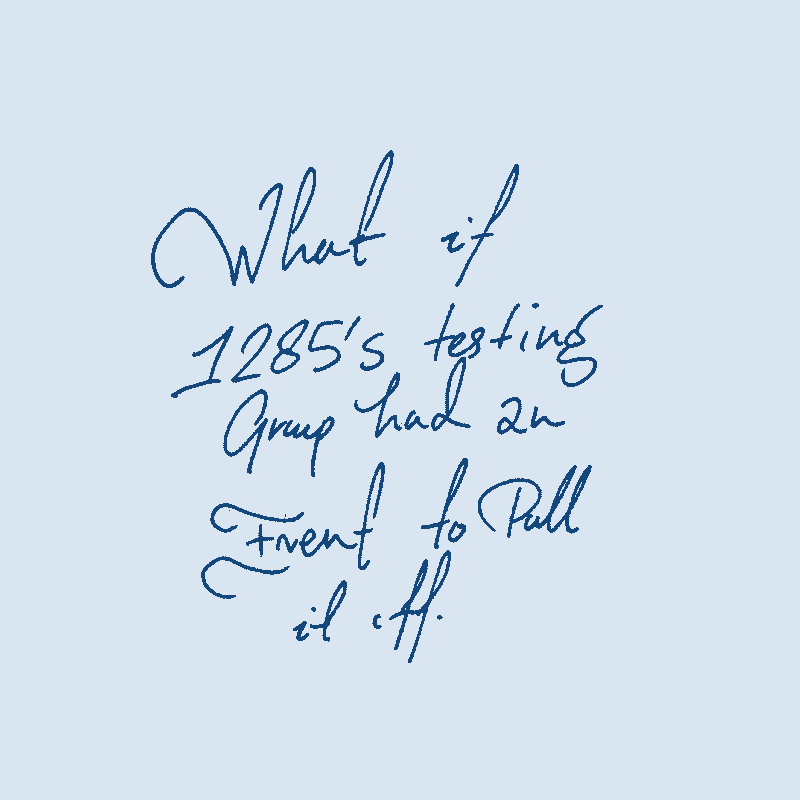 What if
1285's testing
Group had an
Event to Pull
it off.